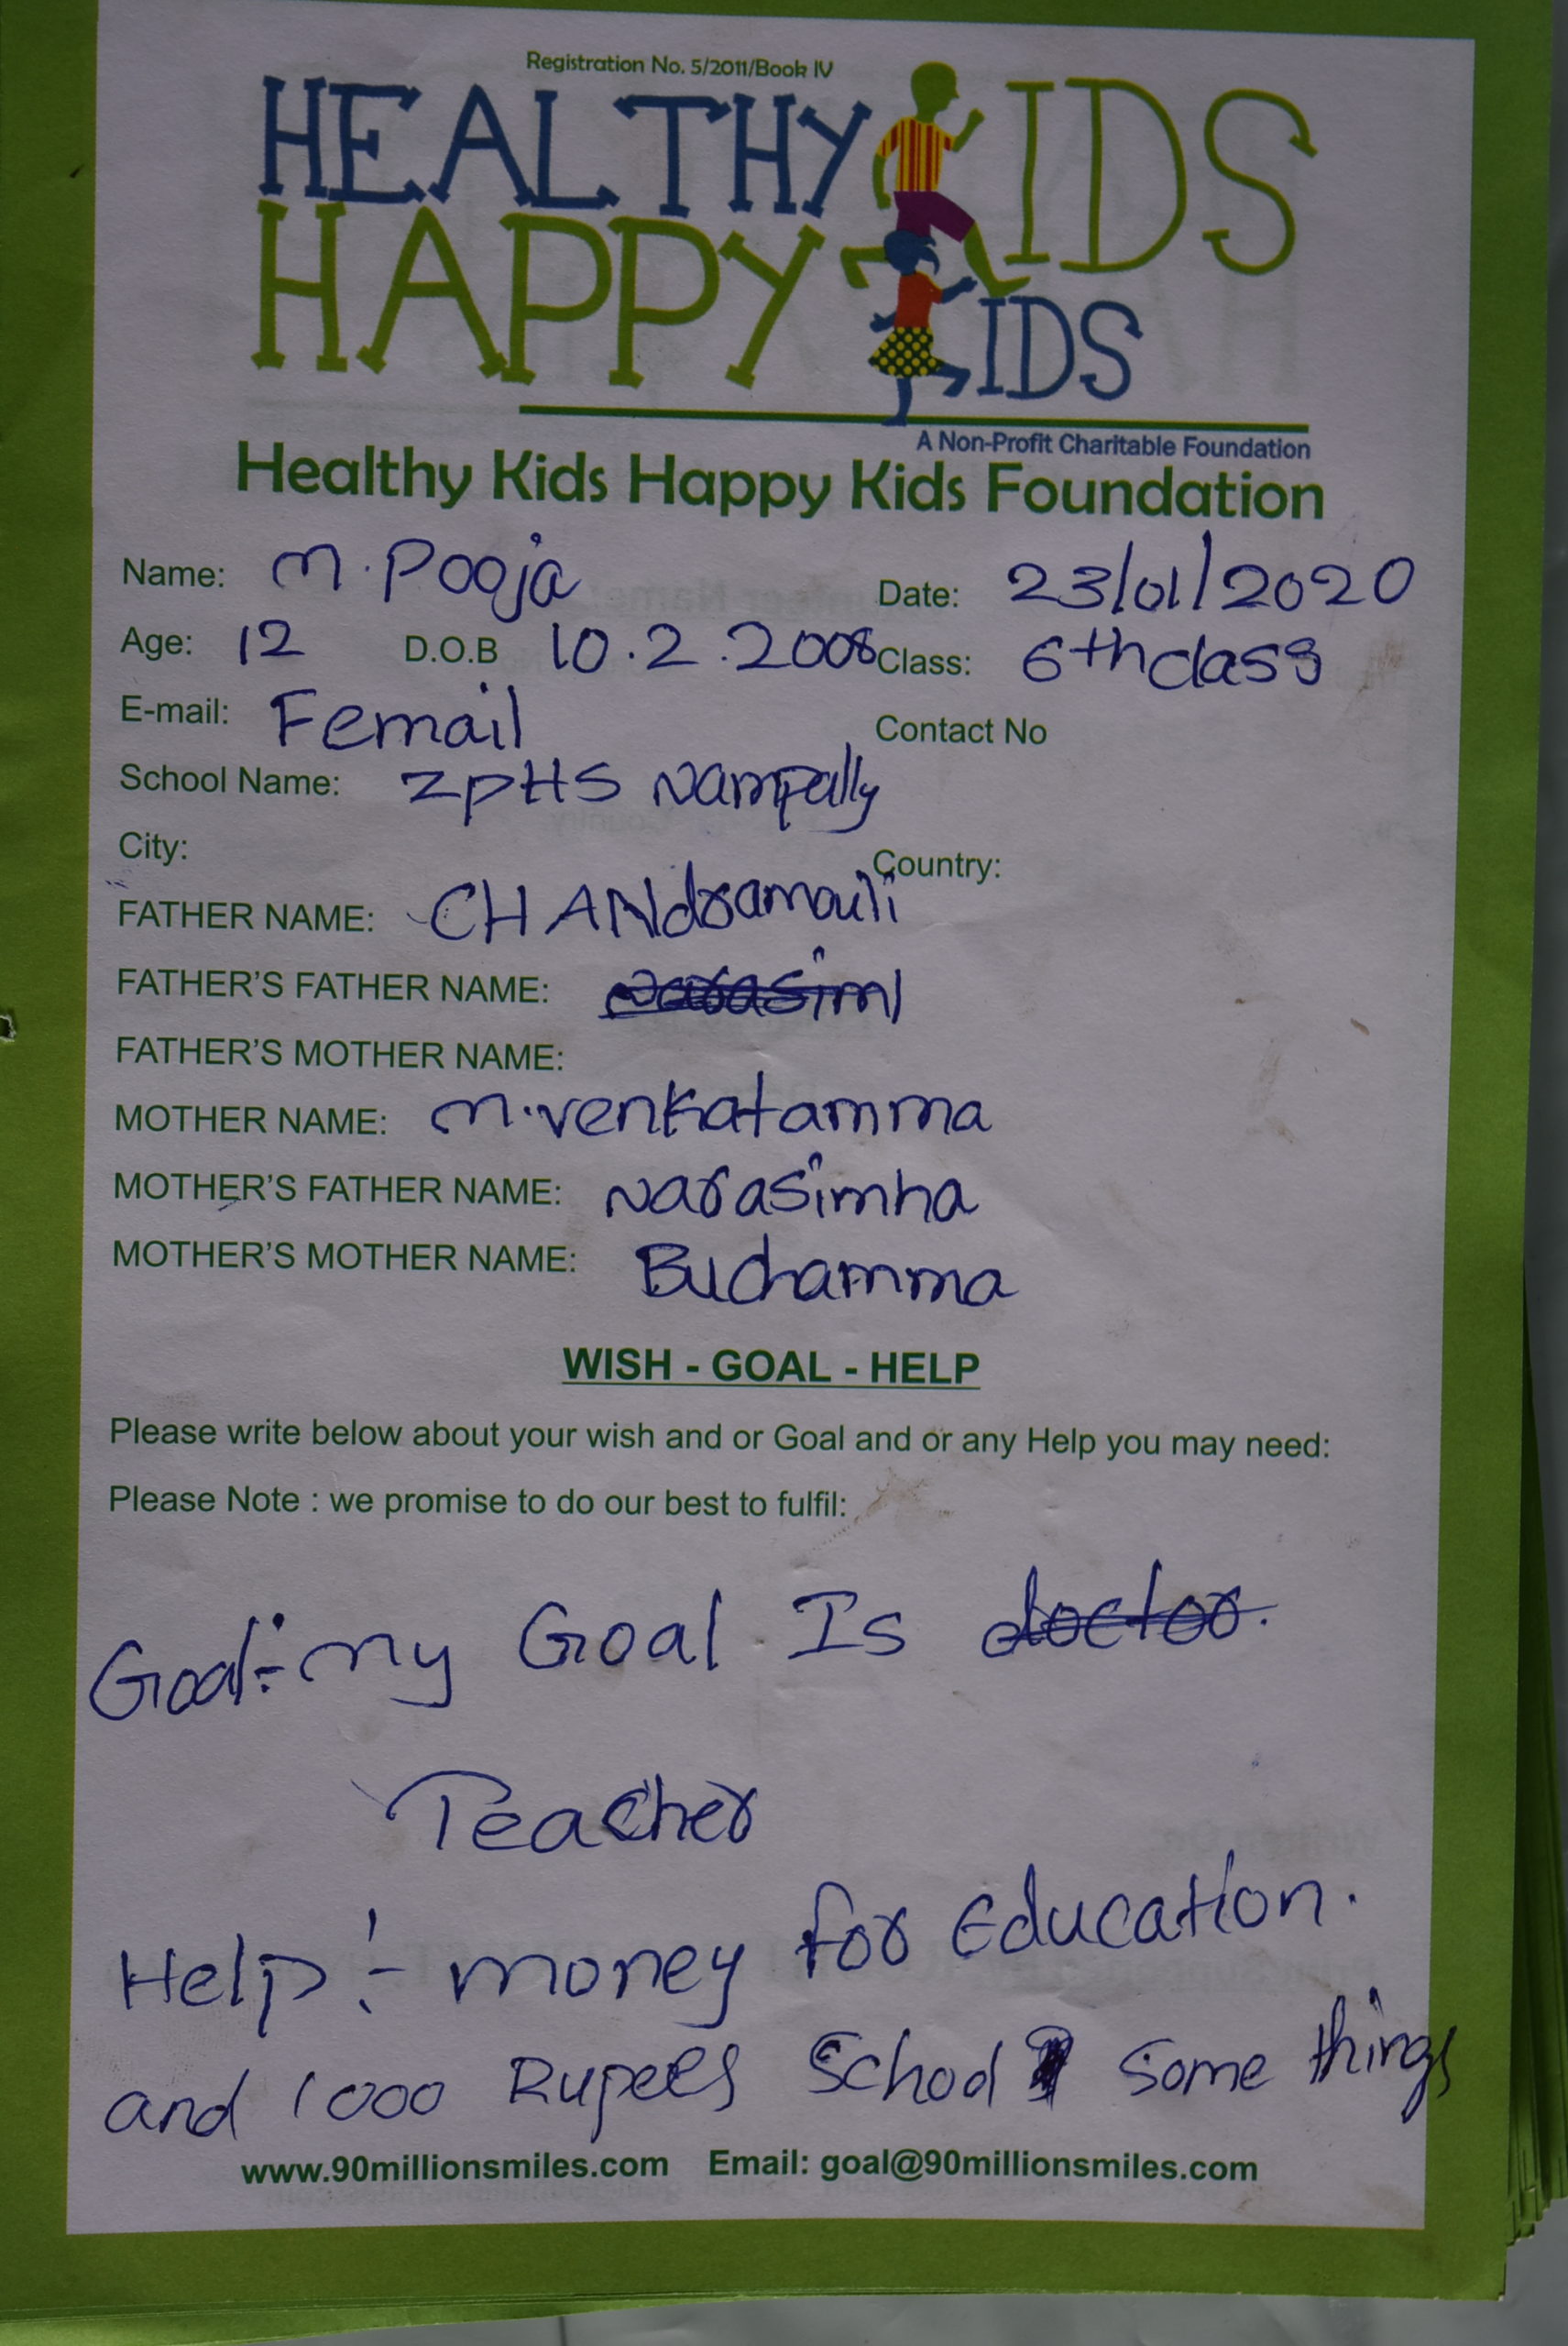 Registration No. 5/2011/Book IV
HEALTHY KIDS
HAPPY KIDS
A Non-Profit Charitable Foundation
Healthy Kids Happy Kids Foundation
Name: M. Pooja Date: 23/01/2020
Age: 12 D.O.B 10.2.2008 Class: 6th class
E-mail: Femail Contact No
School Name: ZPHS Nampally
City: Country:
FATHER NAME: CHANdramouli
FATHER'S FATHER NAME:
FATHER'S MOTHER NAME:
MOTHER NAME: M. venkatamma
MOTHER'S FATHER NAME: Narasimha
MOTHER'S MOTHER NAME: Buchamma
WISH - GOAL - HELP
Please write below about your wish and or Goal and or any Help you may need:
Please Note : we promise to do our best to fulfil:
Goal:- my Goal Is doctor.
Teacher
Help:- money for Education.
and 1000 Rupees School some things
www.90millionsmiles.com Email: goal@90millionsmiles.com